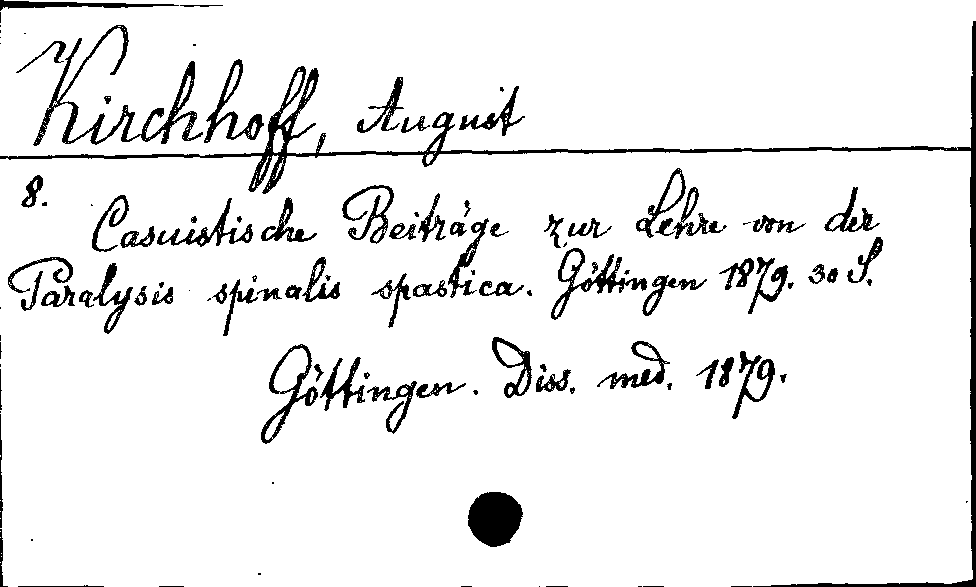 Kirchhoff, August
8.
Casuistische Beiträge zur Lehre von der
Paralysis spinalis spastica. Göttingen 1879. 30 S.
Göttingen. Diss. med. 1879.